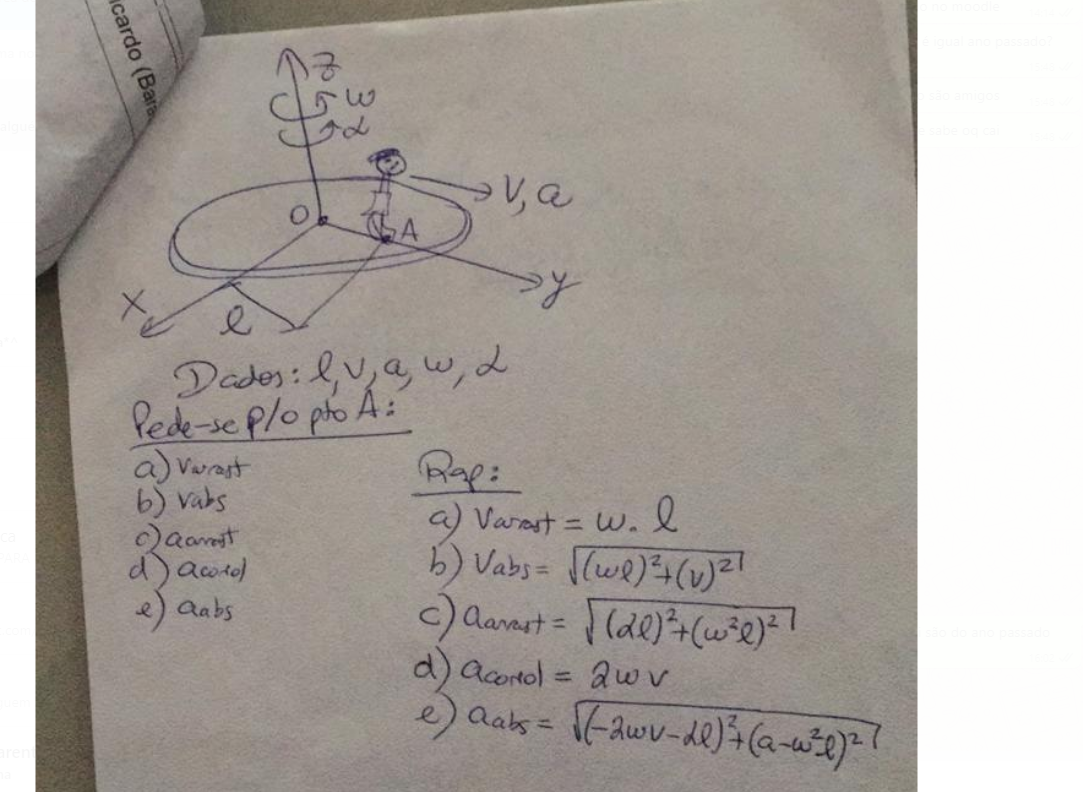 icardo (Bara
z
ω
α
O
A
V, a
x
y
l
Dados: l, v, a, ω, α
Pede-se p/o pto A:
a) Varrast
b) Vabs
c) aarrast
d) acoriol
e) aabs
Rsp:
a) Varrast = ω. l
b) Vabs = √(ωl)²+(v)²
c) aarrast = √(αl)²+(ω²l)²
d) acoriol = 2ωv
e) aabs = √(-2ωv-αl)²+(a-ω²l)²